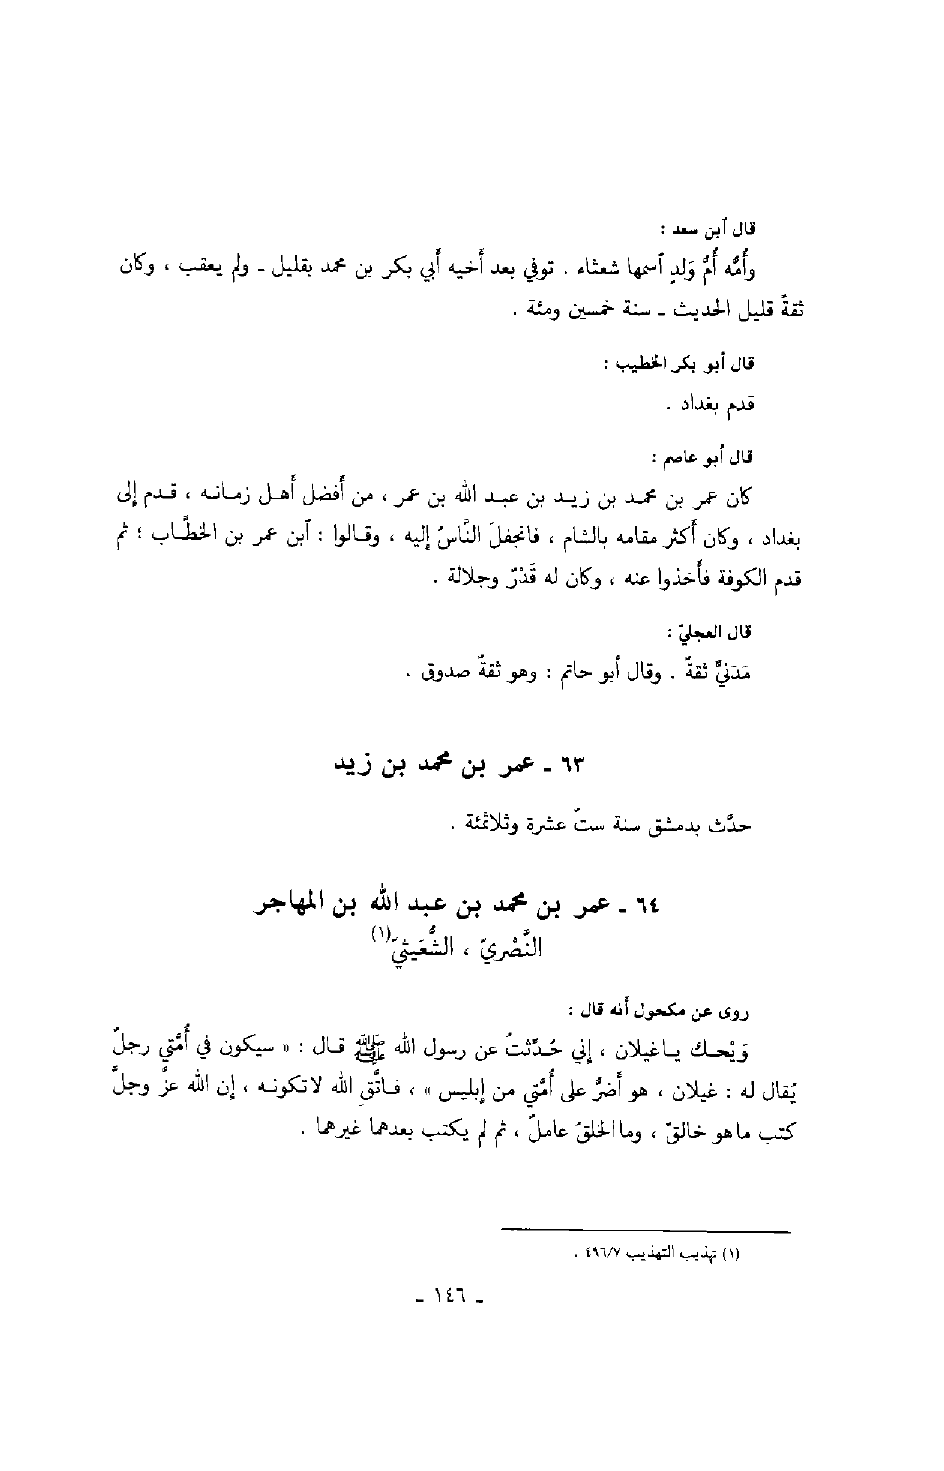 قال ٱبن سعد :
وأُمُّه أُمُّ وَلدٍ ٱسمها شعثاء . توفي بعد أخيه أبي بكر بن محمد بقليل ـ ولم يعقب ، وكان
ثقةً قليل الحديث ـ سنة خمسين ومئة .
قال أبو بكر الخطيب :
قدم بغداد .
قال أبو عاصم :
كان عمر بن محمد بن زيد بن عبد الله بن عمر ، من أفضل أهل زمانه ، قدم إلى
بغداد ، وكان أكثر مقامه بالشام ، فانجفلَ النَّاسُ إليه ، وقالوا : ٱبن عمر بن الخطَّاب ؛ ثم
قدم الكوفة فأخذوا عنه ، وكان له قَدْرٌ وجلالة .
قال العجليّ :
مَدَنيٌّ ثقةٌ . وقال أبو حاتم : وهو ثقةٌ صدوق .
٦٣ ـ عمر بن محمد بن زيد
حدَّث بدمشق سنة ستّ عشرة وثلاثمئة .
٦٤ ـ عمر بن محمد بن عبد الله بن المهاجر
النَّصْريّ ، الشُّعَيثيّ(١)
روى عن مكحول أنه قال :
وَيْحك ياغيلان ، إني حُدِّثتُ عن رسول الله ﷺ قال : « سيكون في أُمَّتي رجلٌ
يُقال له : غيلان ، هو أضرُّ على أُمَّتي من إبليس » ، فاتَّقِ الله لاتكونه ، إن الله عزَّ وجلَّ
كتب ماهو خالقٌ ، وما الخلقُ عاملٌ ، ثم لم يكتب بعدهما غيرهما .
(١) تهذيب التهذيب ٤٩٦/٧ .
ـ ١٤٦ ـ